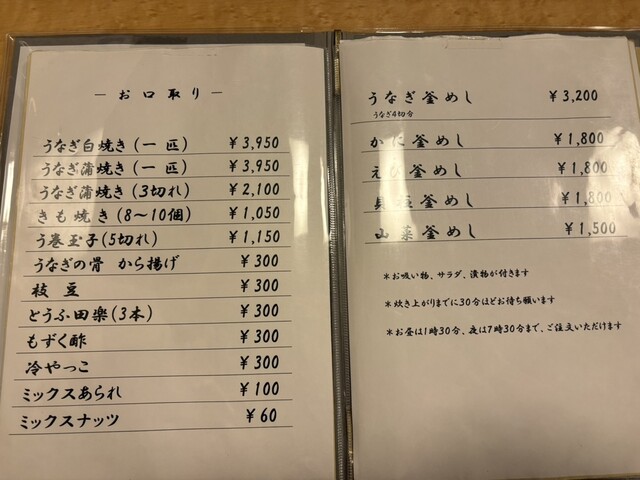 － お 口 取 り －
うなぎ白焼き (一 匹) ￥3,950
うなぎ蒲焼き (一 匹) ￥3,950
うなぎ蒲焼き (3切れ) ￥2,100
きも焼き (8～10個) ￥1,050
う巻玉子(5切れ) ￥1,150
うなぎの骨 から揚げ ￥300
枝 豆 ￥300
とうふ田楽(3本) ￥300
もずく酢 ￥300
冷やっこ ￥300
ミックスあられ ￥100
ミックスナッツ ￥60
うなぎ釜めし ￥3,200
うなぎ4切分
かに釜めし ￥1,800
えび釜めし ￥1,800
釜めし ￥1,800
山菜釜めし ￥1,500
＊お吸い物、サラダ、漬物が付きます
＊炊き上がりまでに30分ほどお待ち願います
＊お昼は1時30分、夜は7時30分まで、ご注文いただけます